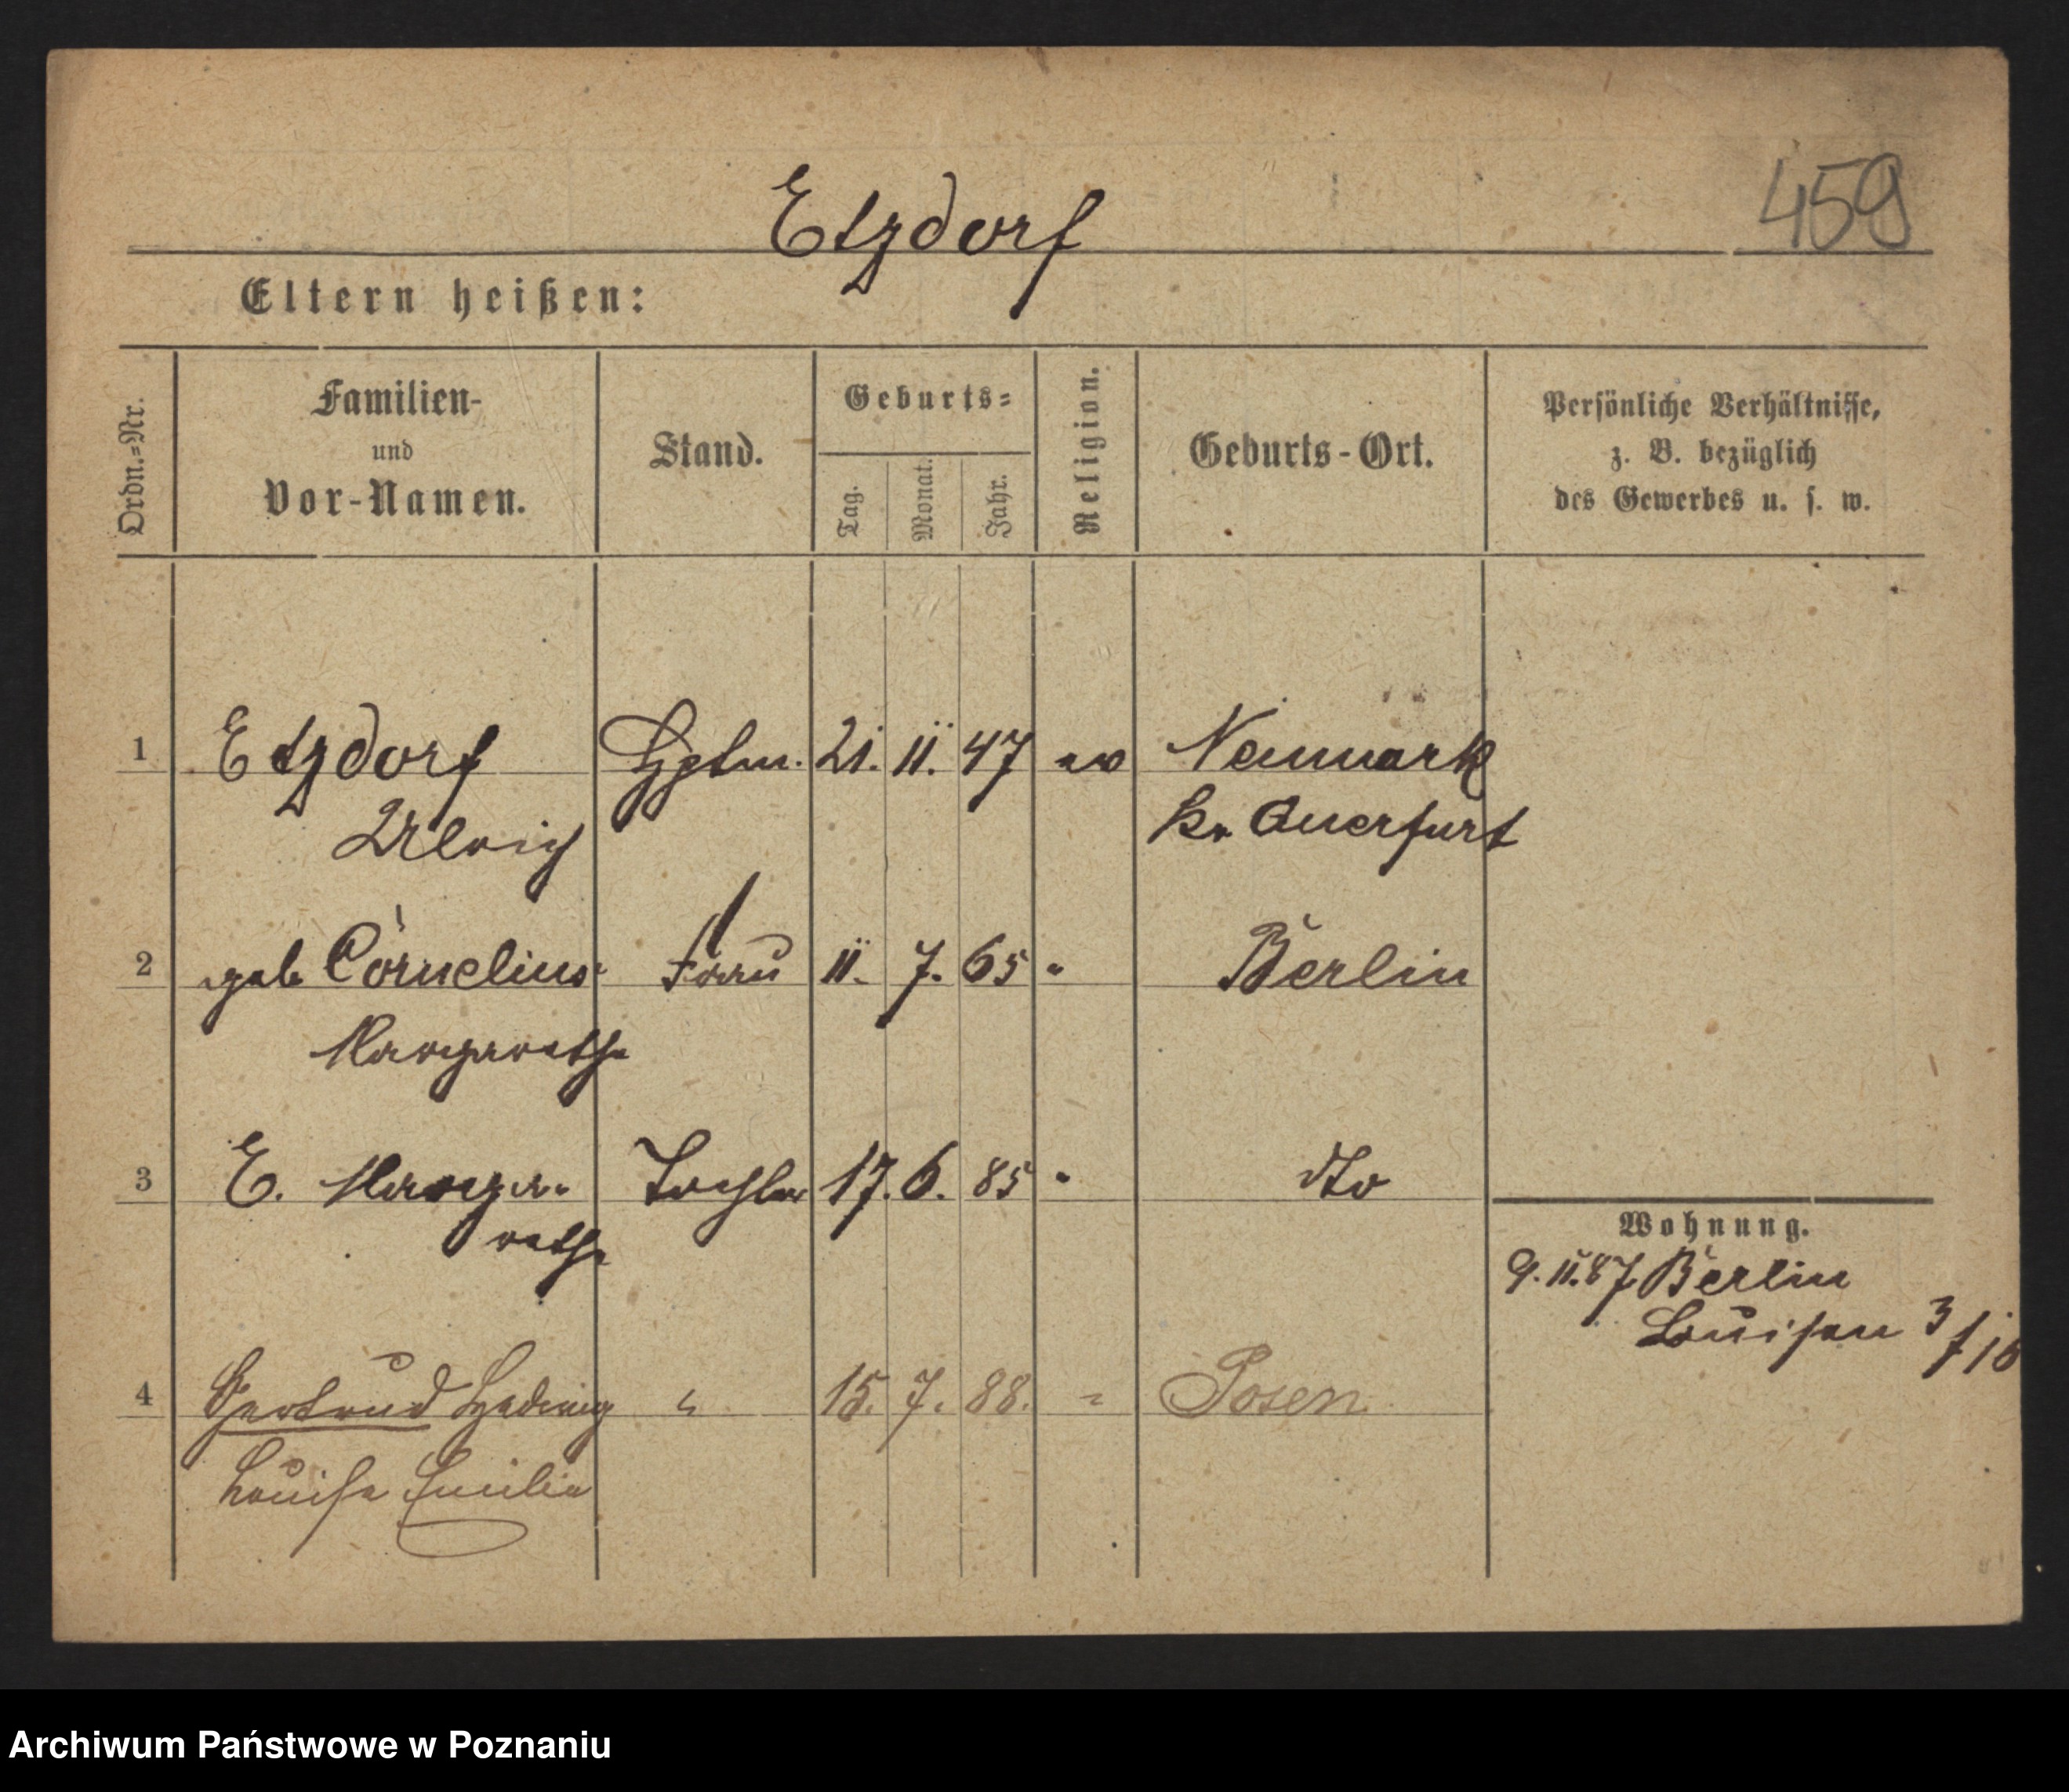 Etzdorf
459
Eltern heißen:
Ordn.-Nr.
Familien-
und
Vor-Namen.
Stand.
Geburts-
Tag.
Monat.
Jahr.
Religion.
Geburts-Ort.
Persönliche Verhältnisse,
z. B. bezüglich
des Gewerbes u. s. w.
1 Etzdorf Hptm. 21. 11. 47 ev Neumark
Ulrich Kr. Querfurt
2 geb Cornelius Frau 11. 7. 65 " Berlin
Margarethe
3 E. Marga- Tochter 17. 6. 85 " dto
rethe
Wohnung.
9.11.87 Berlin
Louisen 3/
4 Gertrud Hedwig " 15. 7. 88. " Posen
Louise Emilie
Archiwum Państwowe w Poznaniu